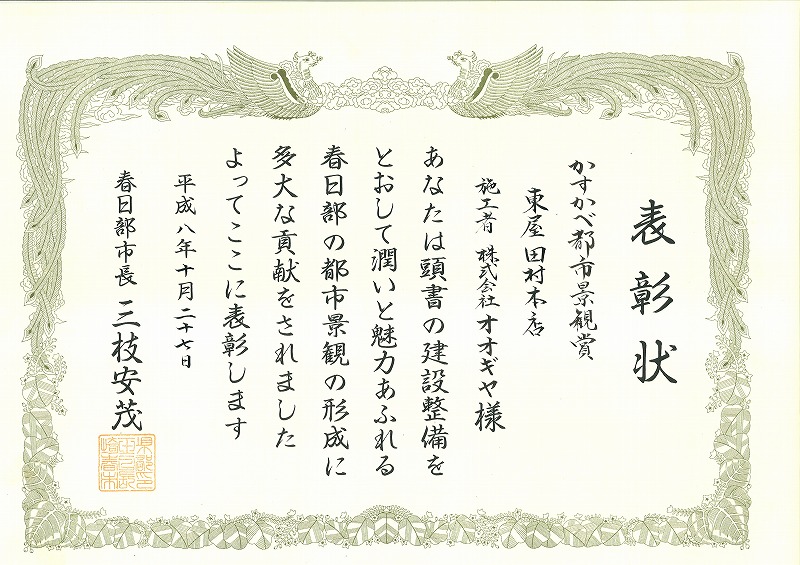 表彰状
かすかべ都市景観賞
東屋田村本店
施工者 株式会社オオギヤ様
あなたは頭書の建設整備を
とおして潤いと魅力あふれる
春日部の都市景観の形成に
多大な貢献をされました
よってここに表彰します
平成八年十月二十七日
春日部市長 三枝安茂